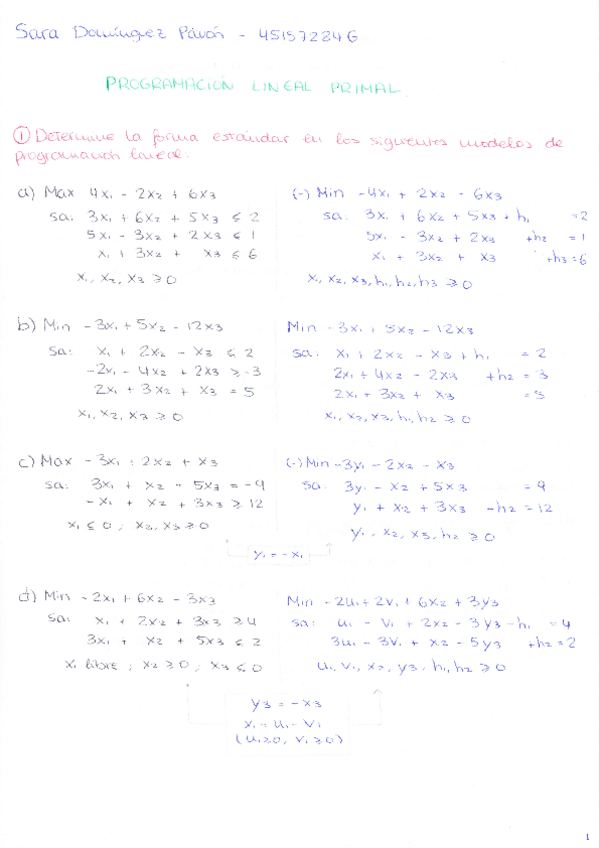 Sara Domínguez Pavón - 45157284G
PROGRAMACIÓN LINEAL PRIMAL
① Determine la forma estándar en los siguientes modelos de
programación lineal:
a) Max 4x₁ - 2x₂ + 6x₃
sa: 3x₁ + 6x₂ + 5x₃ ≤ 2
5x₁ - 3x₂ + 2x₃ ≤ 1
x₁ + 3x₂ + x₃ ≤ 6
x₁, x₂, x₃ ≥ 0
(-) Min -4x₁ + 2x₂ - 6x₃
sa: 3x₁ + 6x₂ + 5x₃ + h₁ = 2
5x₁ - 3x₂ + 2x₃ + h₂ = 1
x₁ + 3x₂ + x₃ + h₃ = 6
x₁, x₂, x₃, h₁, h₂, h₃ ≥ 0
b) Min -3x₁ + 5x₂ - 12x₃
sa: x₁ + 2x₂ - x₃ ≤ 2
-2x₁ - 4x₂ + 2x₃ ≥ -3
2x₁ + 3x₂ + x₃ = 5
x₁, x₂, x₃ ≥ 0
Min -3x₁ + 5x₂ - 12x₃
sa: x₁ + 2x₂ - x₃ + h₁ = 2
2x₁ + 4x₂ - 2x₃ + h₂ = 3
2x₁ + 3x₂ + x₃ = 5
x₁, x₂, x₃, h₁, h₂ ≥ 0
c) Max -3x₁ + 2x₂ + x₃
sa: 3x₁ + x₂ - 5x₃ = -9
-x₁ + x₂ + 3x₃ ≥ 12
x₁ ≤ 0; x₂, x₃ ≥ 0
(-) Min -3y₁ - 2x₂ - x₃
sa: 3y₁ - x₂ + 5x₃ = 9
y₁ + x₂ + 3x₃ - h₂ = 12
y₁, x₂, x₃, h₂ ≥ 0
y₁ = -x₁
d) Min -2x₁ + 6x₂ - 3x₃
sa: x₁ + 2x₂ + 3x₃ ≥ 4
3x₁ + x₂ + 5x₃ ≤ 2
x₁ libre; x₂ ≥ 0; x₃ ≤ 0
Min -2u₁ + 2v₁ + 6x₂ + 3y₃
sa: u₁ - v₁ + 2x₂ - 3y₃ - h₁ = 4
3u₁ - 3v₁ + x₂ - 5y₃ + h₂ = 2
u₁, v₁, x₂, y₃, h₁, h₂ ≥ 0
y₃ = -x₃
x₁ = u₁ - v₁
(u₁ ≥ 0, v₁ ≥ 0)
1